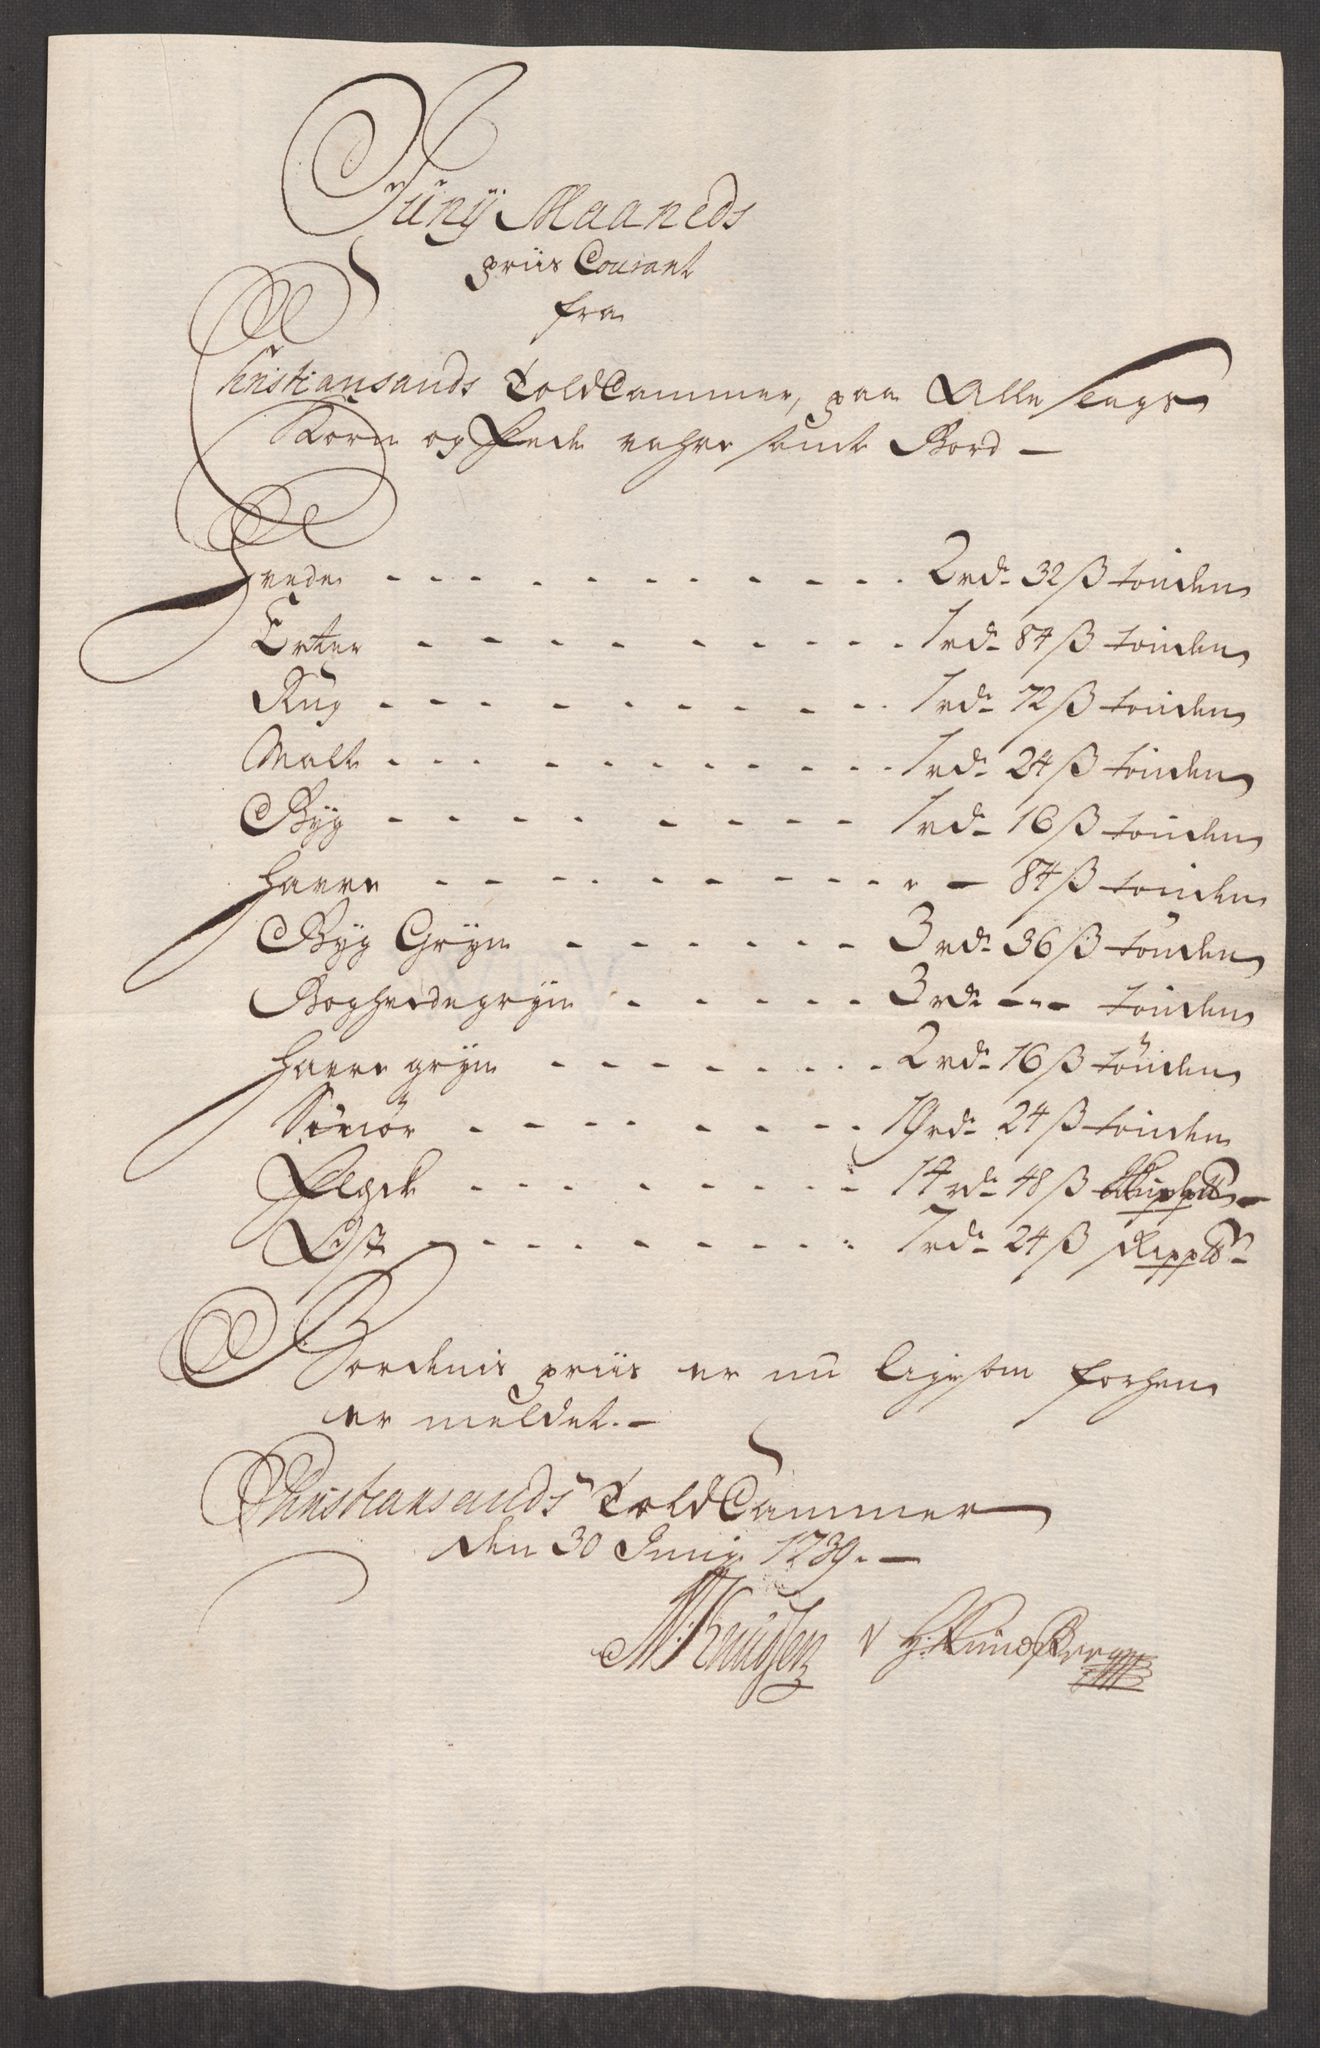 Junÿ Maaneds
priis Courant
fra
Christiansands Told Cammer, paa Alle slags
Korn og Fede vahre samt Bord –
Hvede - - - - - - - - - - 2 rd. 32 ß tönden
Erter - - - - - - - - - - 1 rd. 84 ß tönden
Rug - - - - - - - - - - 1 rd. 72 ß tönden
Malt - - - - - - - - - - 1 rd. 24 ß tönden
Bÿg - - - - - - - - - 1 rd. 16 ß tönden
Havre - - - - - - - - - - „ – 84 ß tönden
Bÿg Grÿn - - - - - - 3 rd. 36 ß tönden
Boghvedegrÿn - - - - - 3 rd. - - - tönden
Havre grÿn - - - - - - - - 2 rd. 16 ß tönden
Smör - - - - - - - - 19 rd. 24 ß tönden
Flesk - - - - - - - - 14 rd. 48 ß
Ost - - - - - - - - 1 rd. 24 ß
Bordenis priis er nu ligesom forhen
er meldet. –
Christiansands Told Cammer
den 30 Junij 1739. –
N: Knudsen H: Rundberg